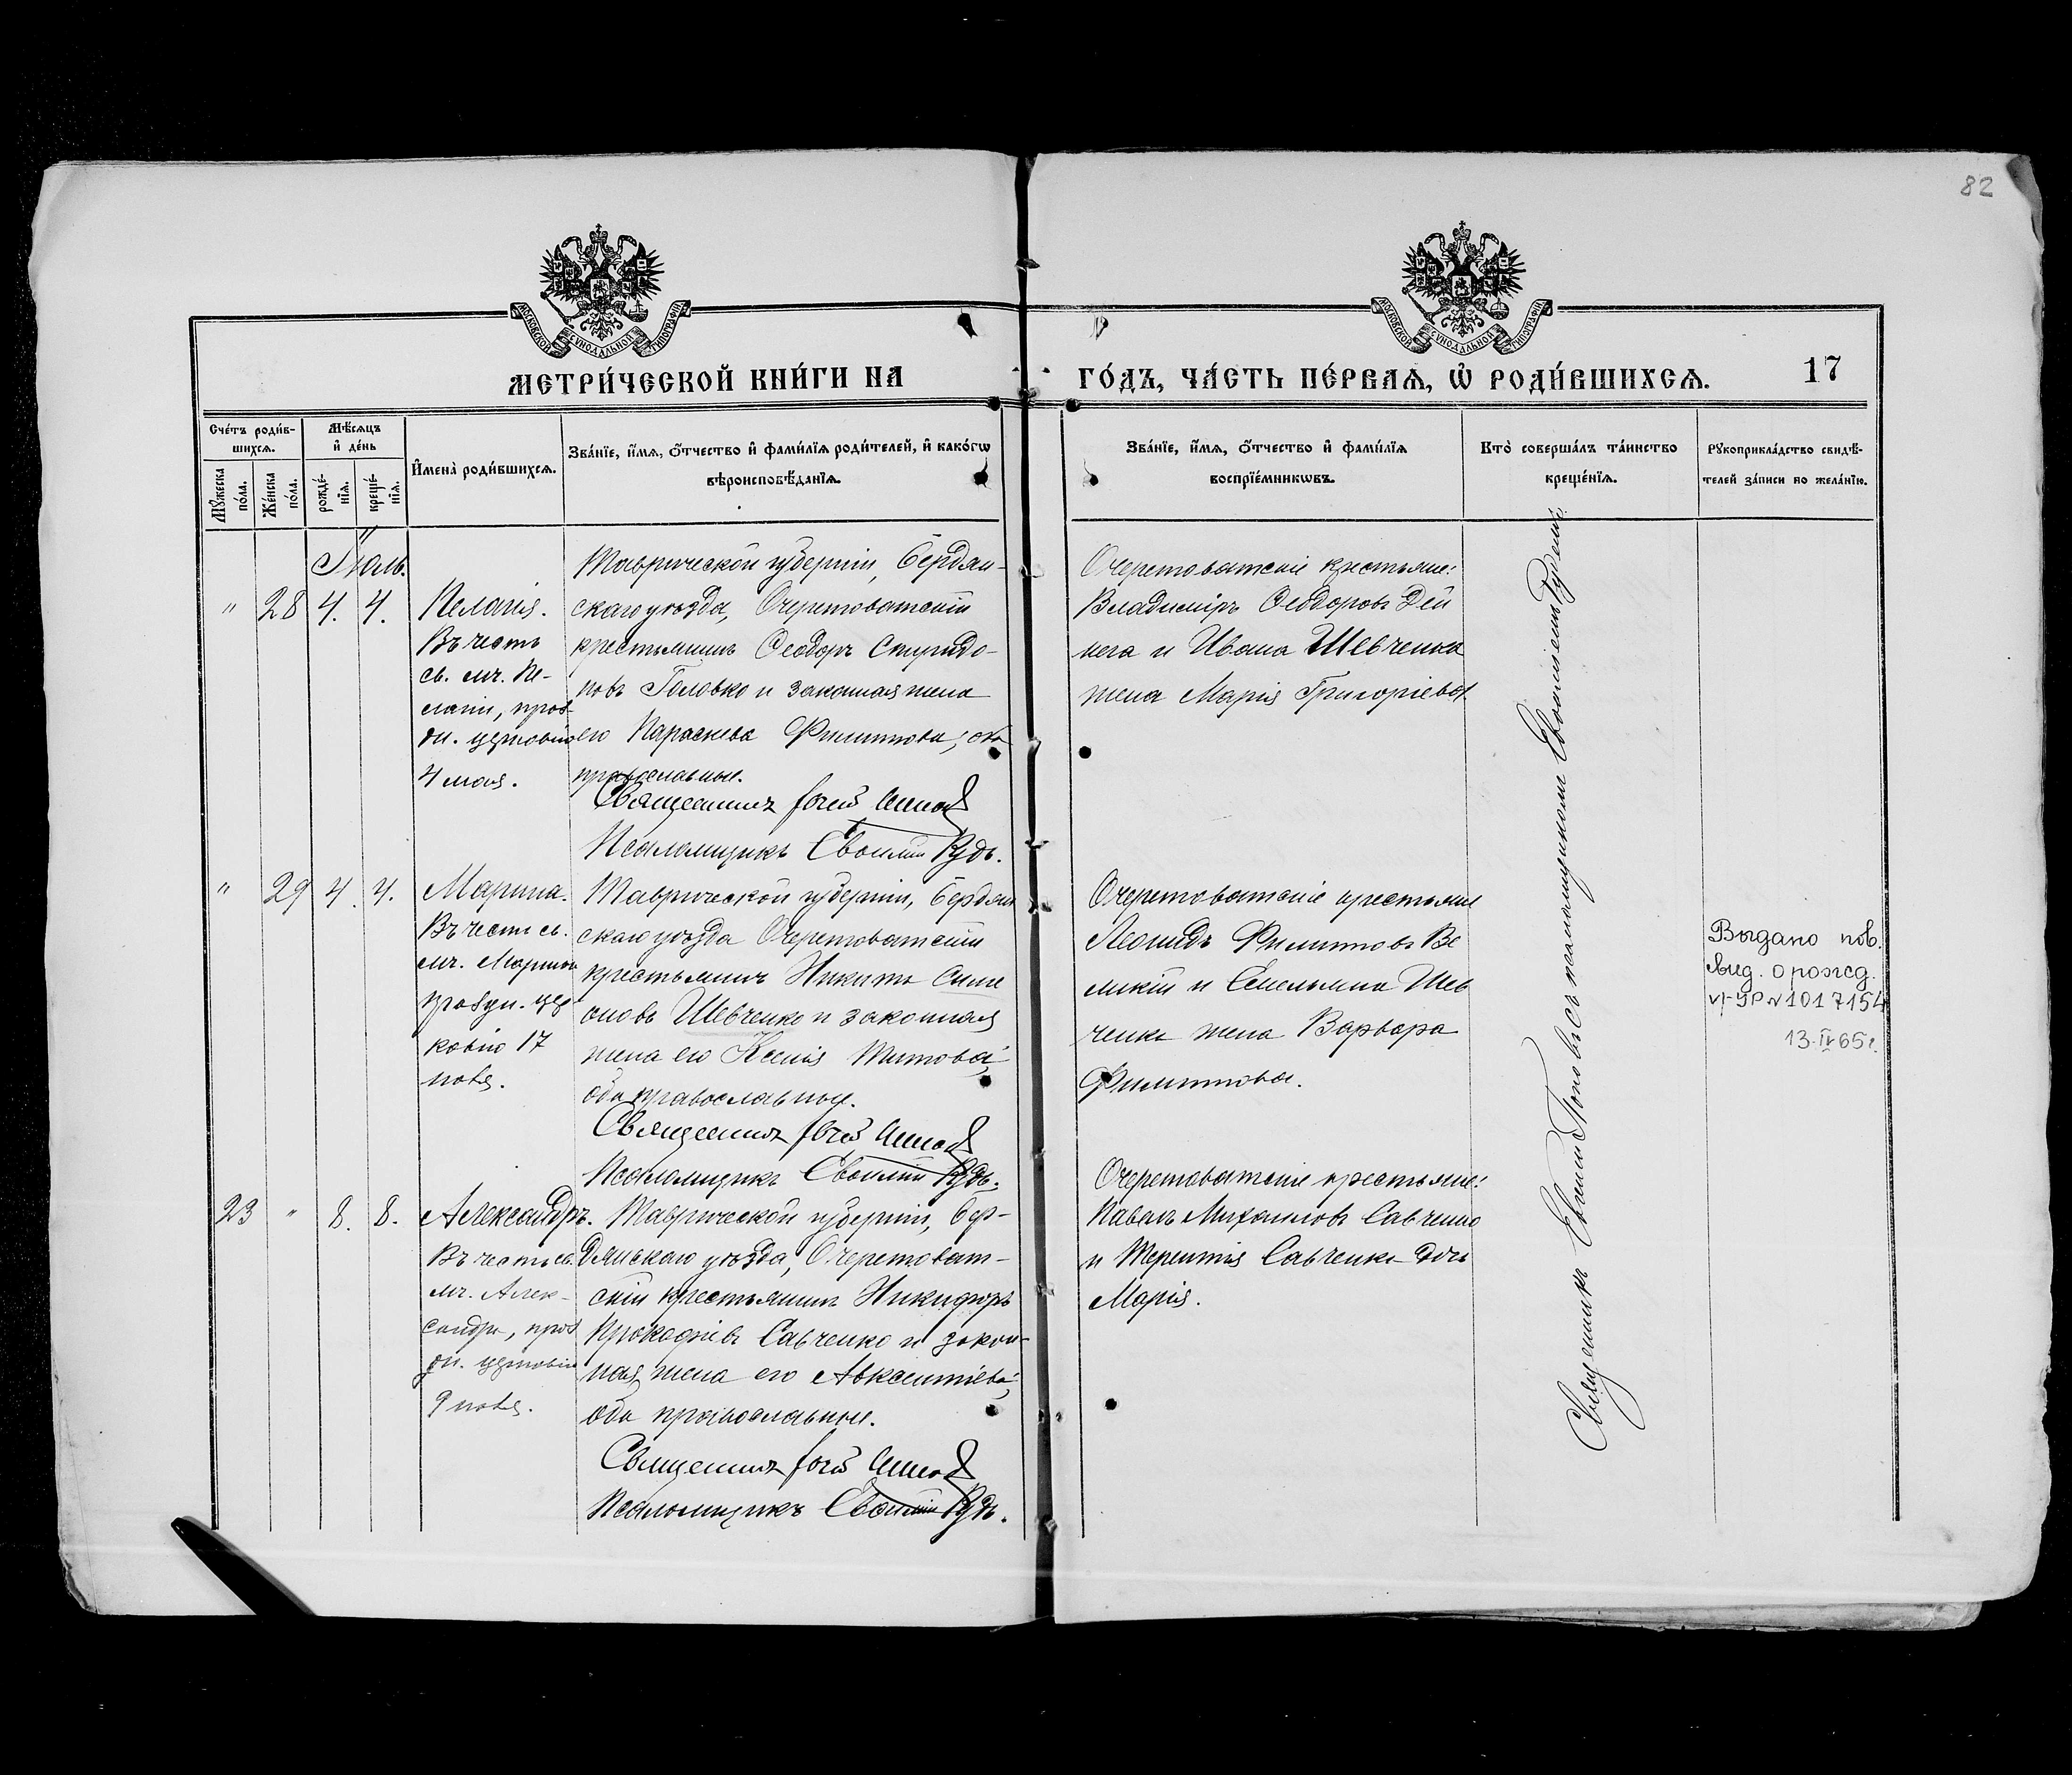 82
МОСКОВСКОЙ СѴНОДАЛЬНОЙ ТИПОГРАФІИ
МОСКОВСКОЙ СѴНОДАЛЬНОЙ ТИПОГРАФІИ
МЕТРИ́ЧЕСКОЙ КНИ́ГИ НА
ГО́ДЪ, ЧА́СТЬ ПЕ́РВАѦ, Ѡ҆ РОДИ́ВШИХСѦ.
17
Сче́тъ роди́в-
шихсѧ.
Мꙋ́жеска
по́ла.
Же́нска
по́ла.
Мѣ́сѧцъ
и҆ де́нь
рожде́-
нїѧ.
креще́-
нїѧ.
И҆мена̀ роди́вшихсѧ.
Зва́нїе, и҆́мѧ, ѻ҆́тчество и҆ фами́лїѧ роди́телей, и҆ како́гѡ
вѣроисповѣ́данїѧ.
Зва́нїе, и҆́мѧ, ѻ҆́тчество и҆ фами́лїѧ
воспрїе́мникѡвъ.
Кто̀ соверша́лъ та́инство
креще́нїѧ.
Рꙋкоприкла́дство свидѣ́-
телей за́писи по жела́нїю.
Іюль.
" 28 4. 4.
Пелагія.
Въ честь
св. мч. Пе-
лагіи, празд-
4 мая.
Таврической губерніи, Бердян-
скаго уѣзда, Очеретоватскій
крестьянинъ Ѳеодоръ Спиридо-
новъ Головко и законная жена
его Параскева Филиппова; оба
православные.
Священникъ
Псаломщикъ Евѳимій Рудь.
Очеретоватскіе крестьяне:
Владиміръ Ѳеодоровъ Дей
нега и Ивана Шевченка
жена Марія Григоріева
" 29 4. 4.
Марина.
Въ честь св.
мч. Марины
праздн. цер
ковію 17
іюля.
Таврической губерніи, Бердян
скаго уѣзда Очеретоватскій
крестьянинъ Никита Симе
оновъ Шевченко и законная
жена его Ксенія Титова;
оба православные.
Священникъ
Псаломщикъ Евѳимій Рудь.
Очеретоватскіе крестьяне
Леонидъ Филипповъ Ве
ликій и Емельяна Шев
ченка жена Варвара
Филиппова.
Выдано пов.
свид. о рожд.
УР № 1017154
13-IV 65 г.
23 " 8. 8.
Александръ.
Въ честь св.
мч. Алек-
сандра, празд
9 іюля.
Таврической губерніи, Бер-
дянскаго уѣзда, Очеретоват-
скій крестьянинъ Никифоръ
Прокофіевъ Савченко и закон-
ная жена его Авксентіева;
оба православные.
Священникъ
Псаломщикъ Евѳимій Рудь.
Очеретоватскіе крестьяне:
Павелъ Михаиловъ Савченко
и Терентія Савченка дочь
Марія.
Священникъ Евгеній Поповъ съ псаломщикомъ Евѳиміемъ Рудемъ.